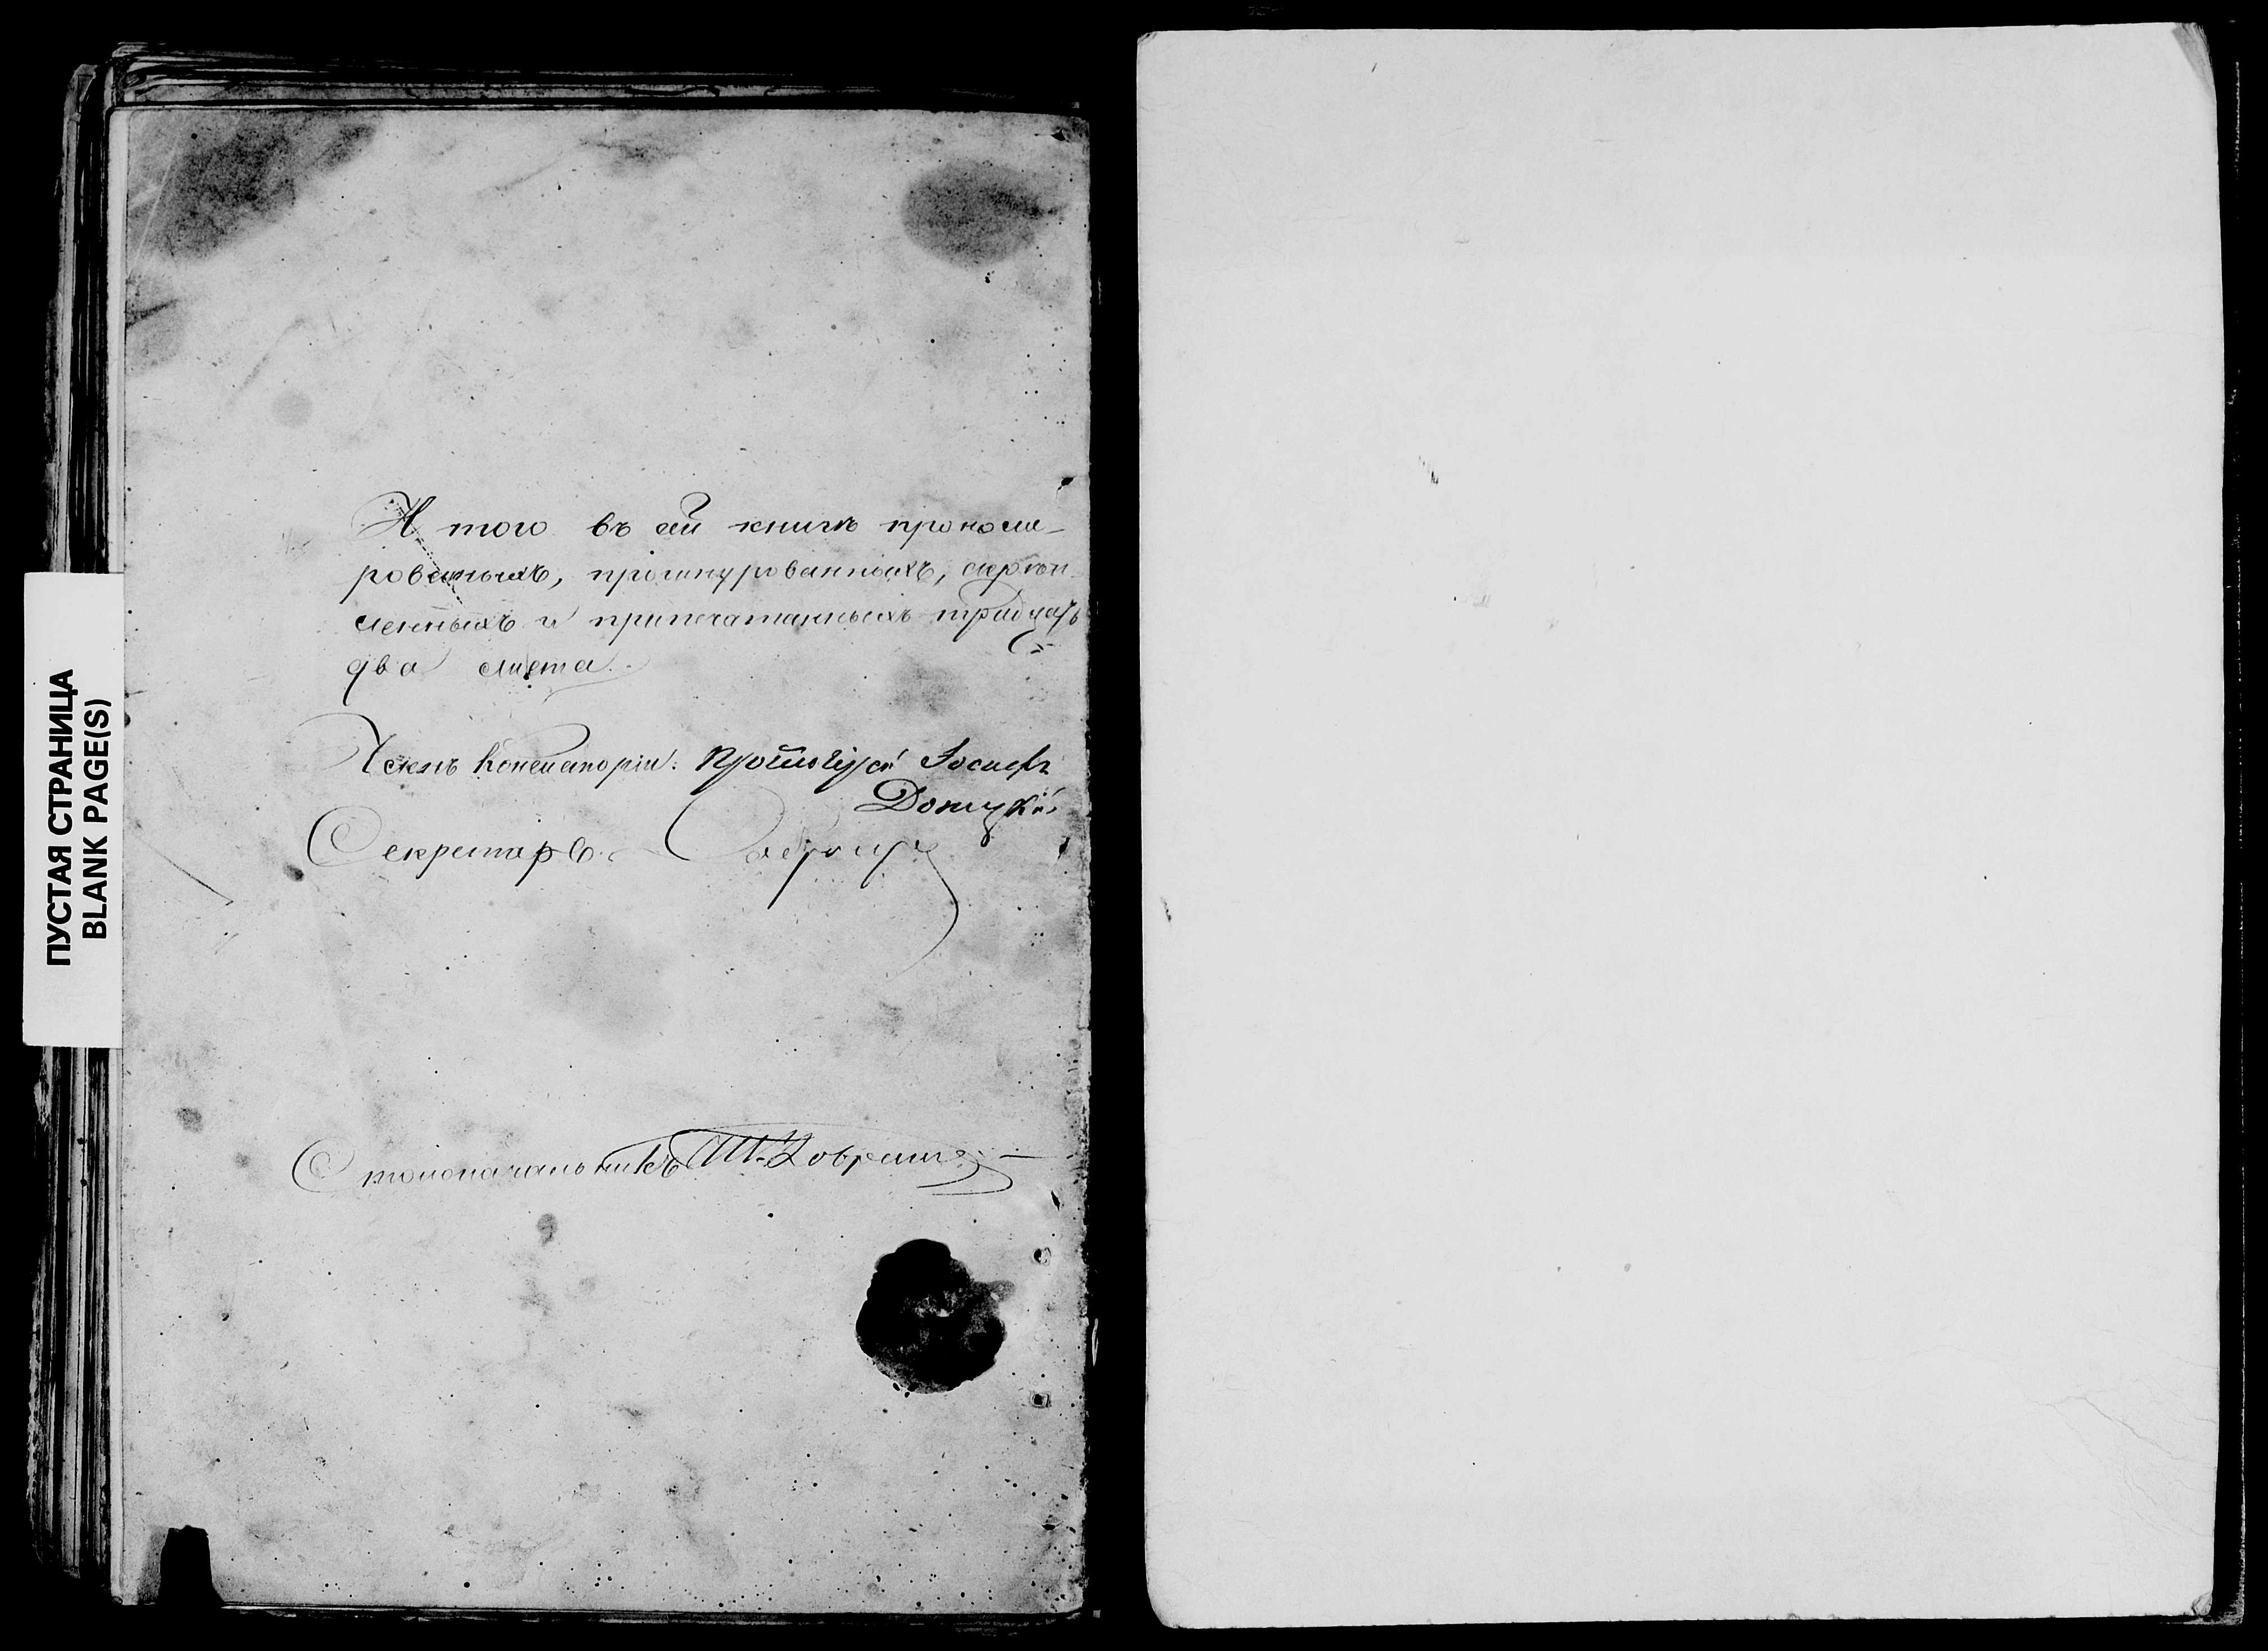 ПУСТАЯ СТРАНИЦА
BLANK PAGE(S)
И того въ сей книгѣ прономе-
рованныхъ, прошнурованныхъ, скрѣп-
ленныхъ и припечатанныхъ тридцать
два листа.
Членъ Консисторіи: Протоіерей Іосифъ
Секретарь
Столоначальникъ